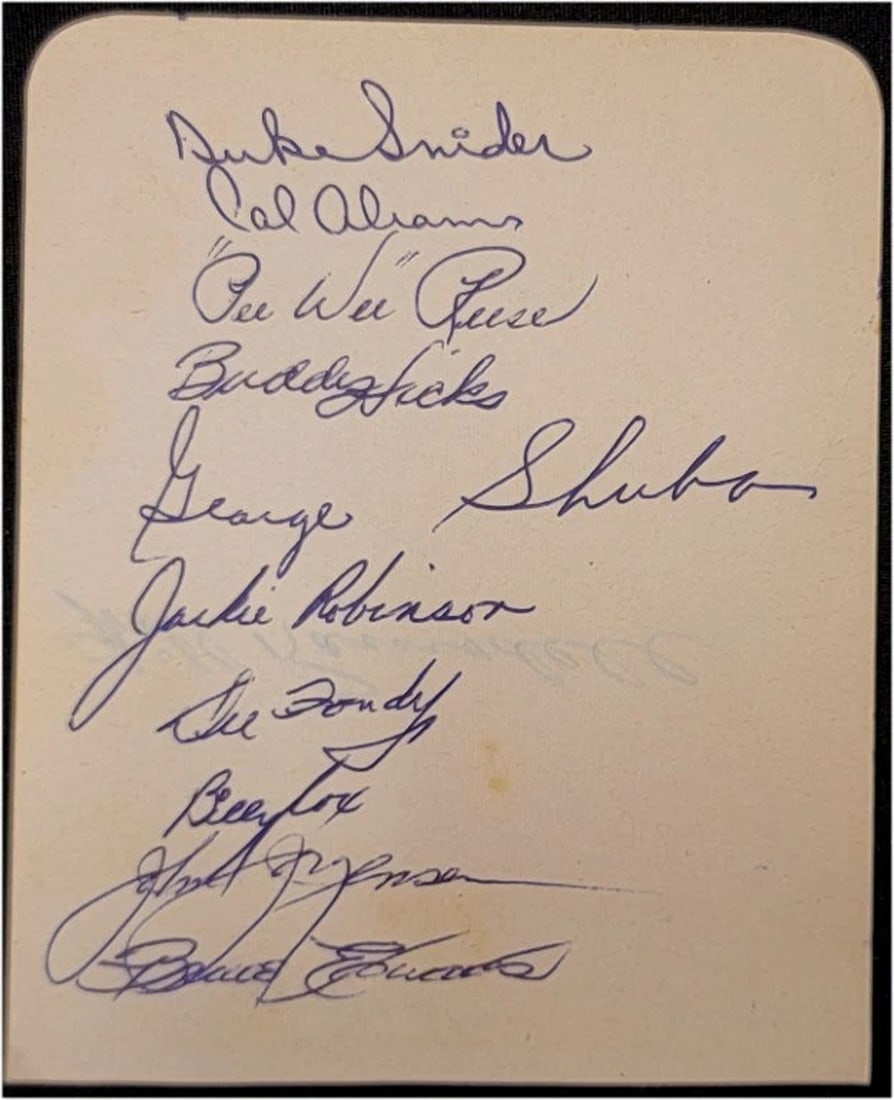 Duke Snider
Cal Abrams
"Pee Wee" Reese
Buddy Hicks
George Shuba
Jackie Robinson
Dee Fondy
Billy Cox
John Jorgensen
Bruce Edwards